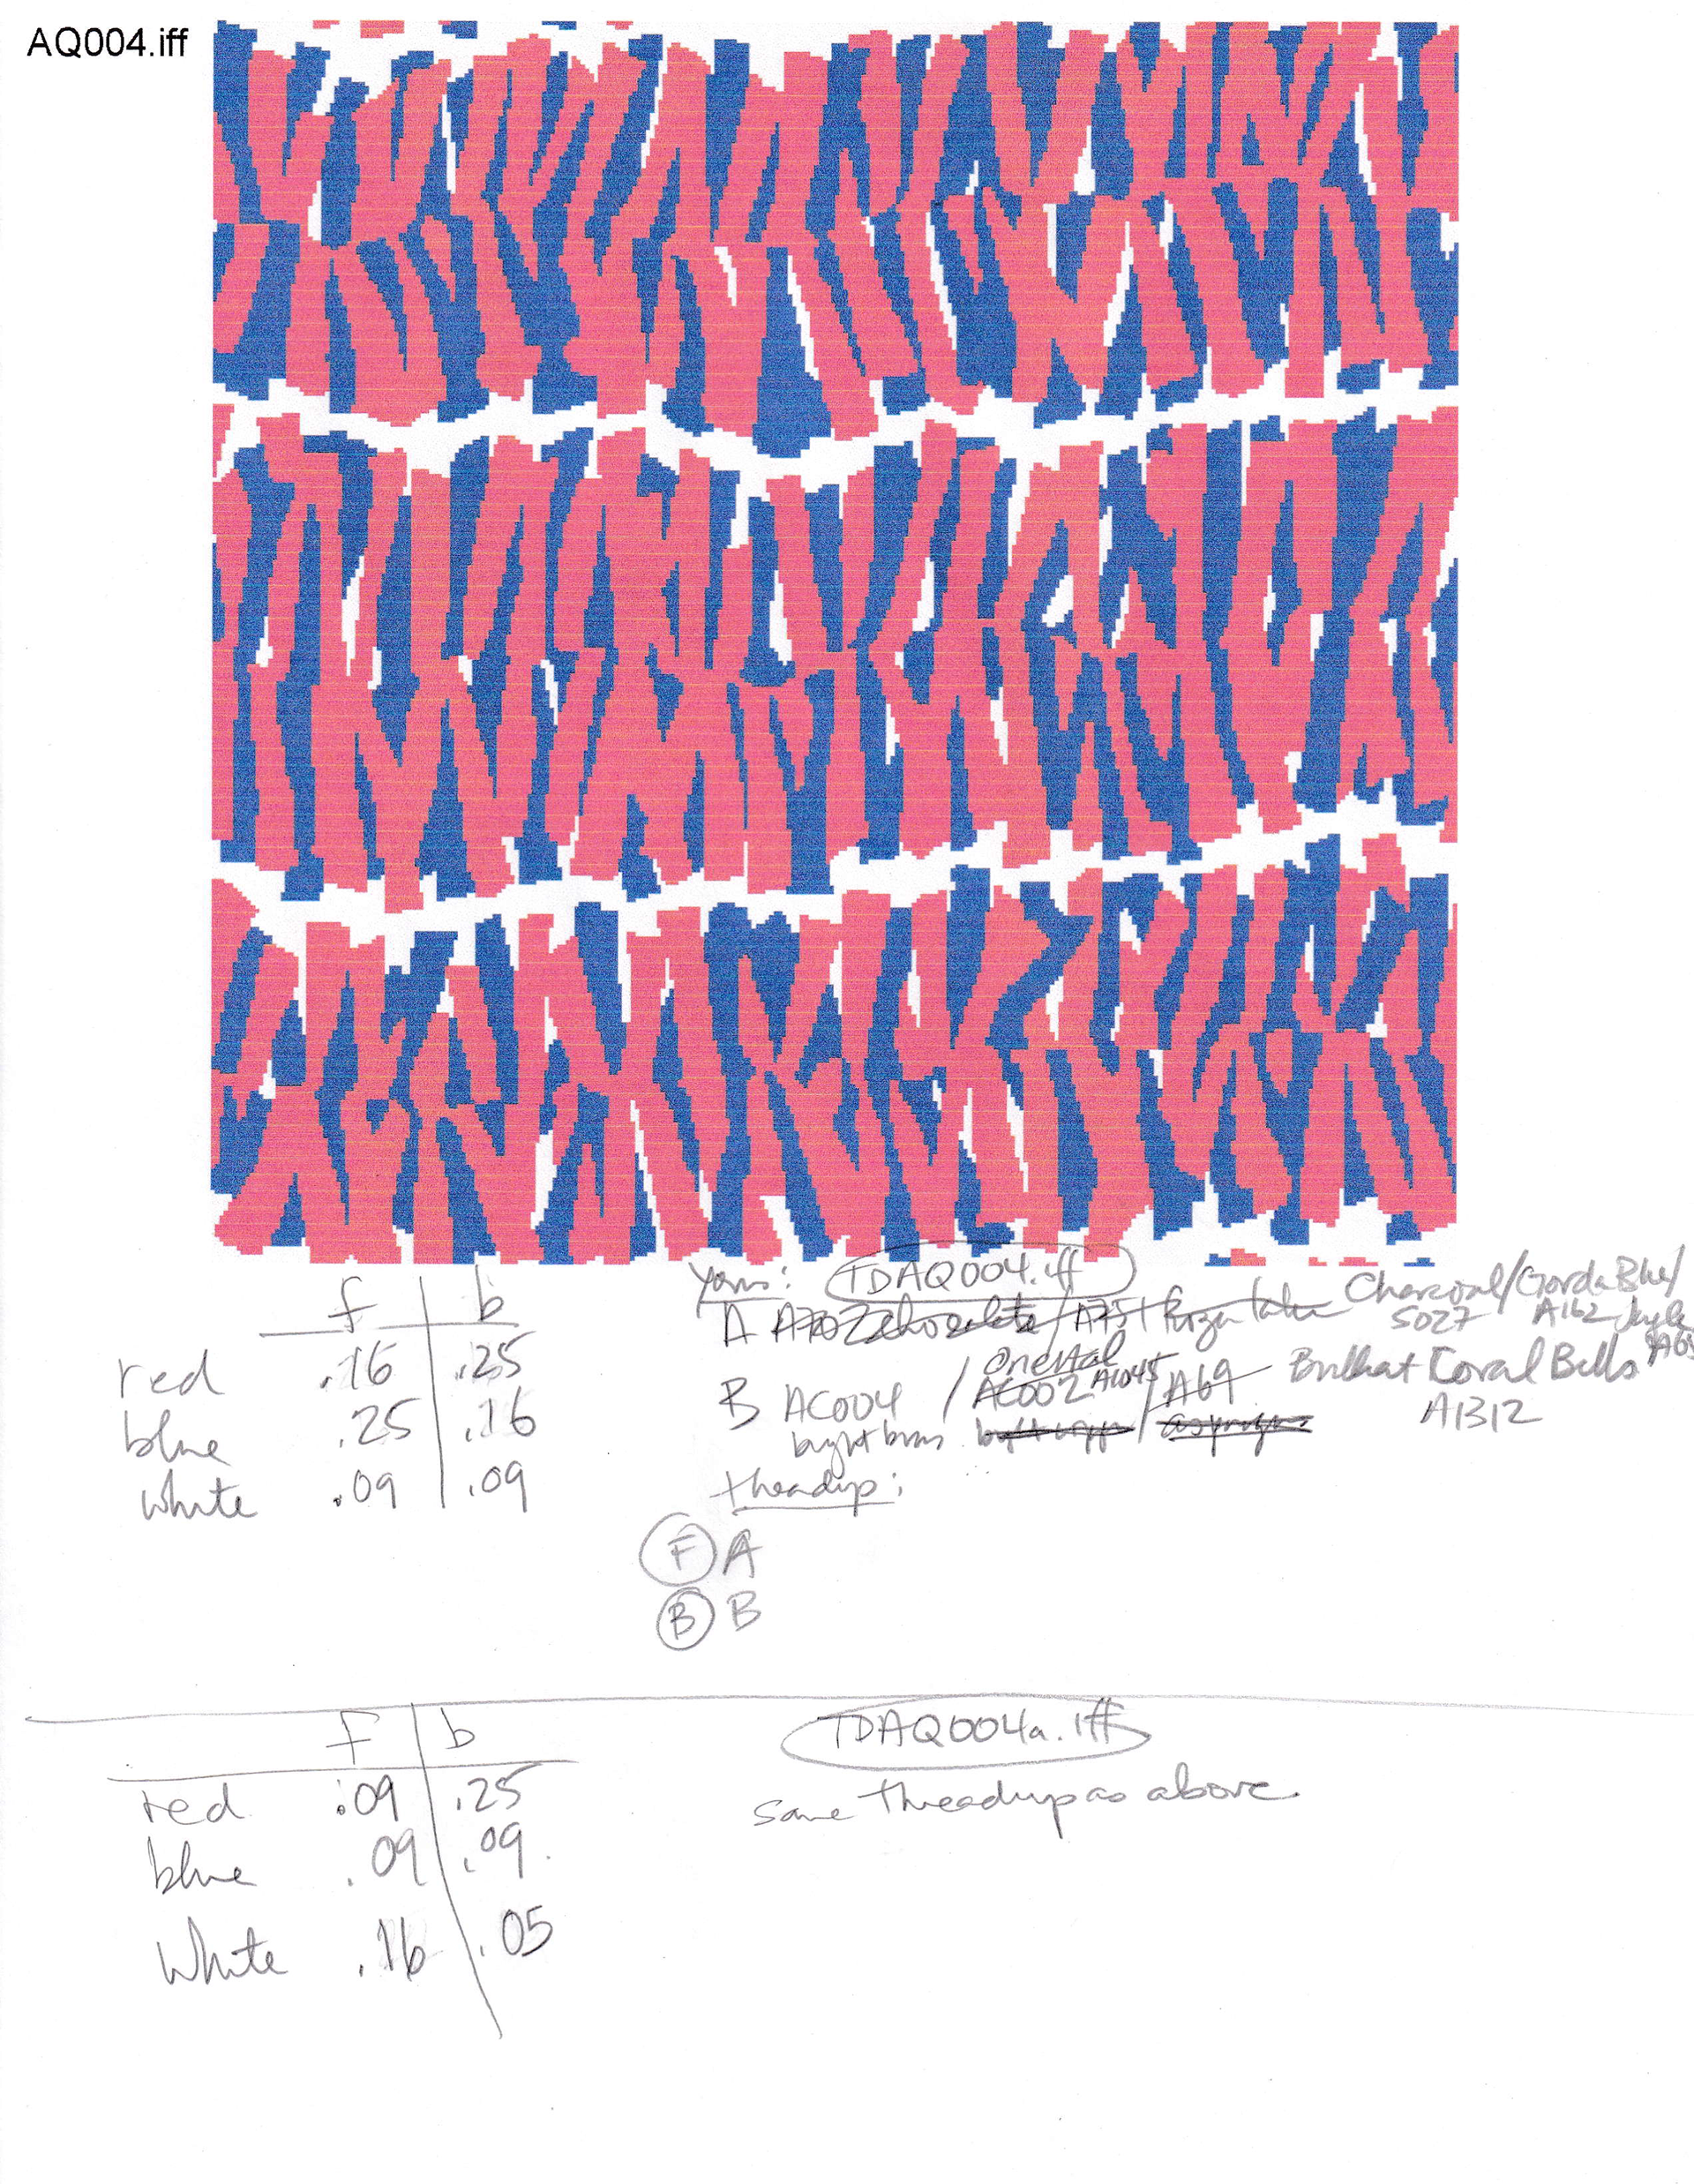 AQ004.iff
f b
red .16 .25
blue .25 .16
white .09 .09
Yarns: TDAQ004.iff
A A702 chocolate / A751 Charcoal/Gorda Blue/
S027 A162
B AC004 / AC002 A1045 / A69 Brilliant Coral Bells
Oriental
A1312
threadup:
F A
B B
f b
red .09 .25
blue .09 .09
white .16 .05
TDAQ004a.iff
same threadup as above.